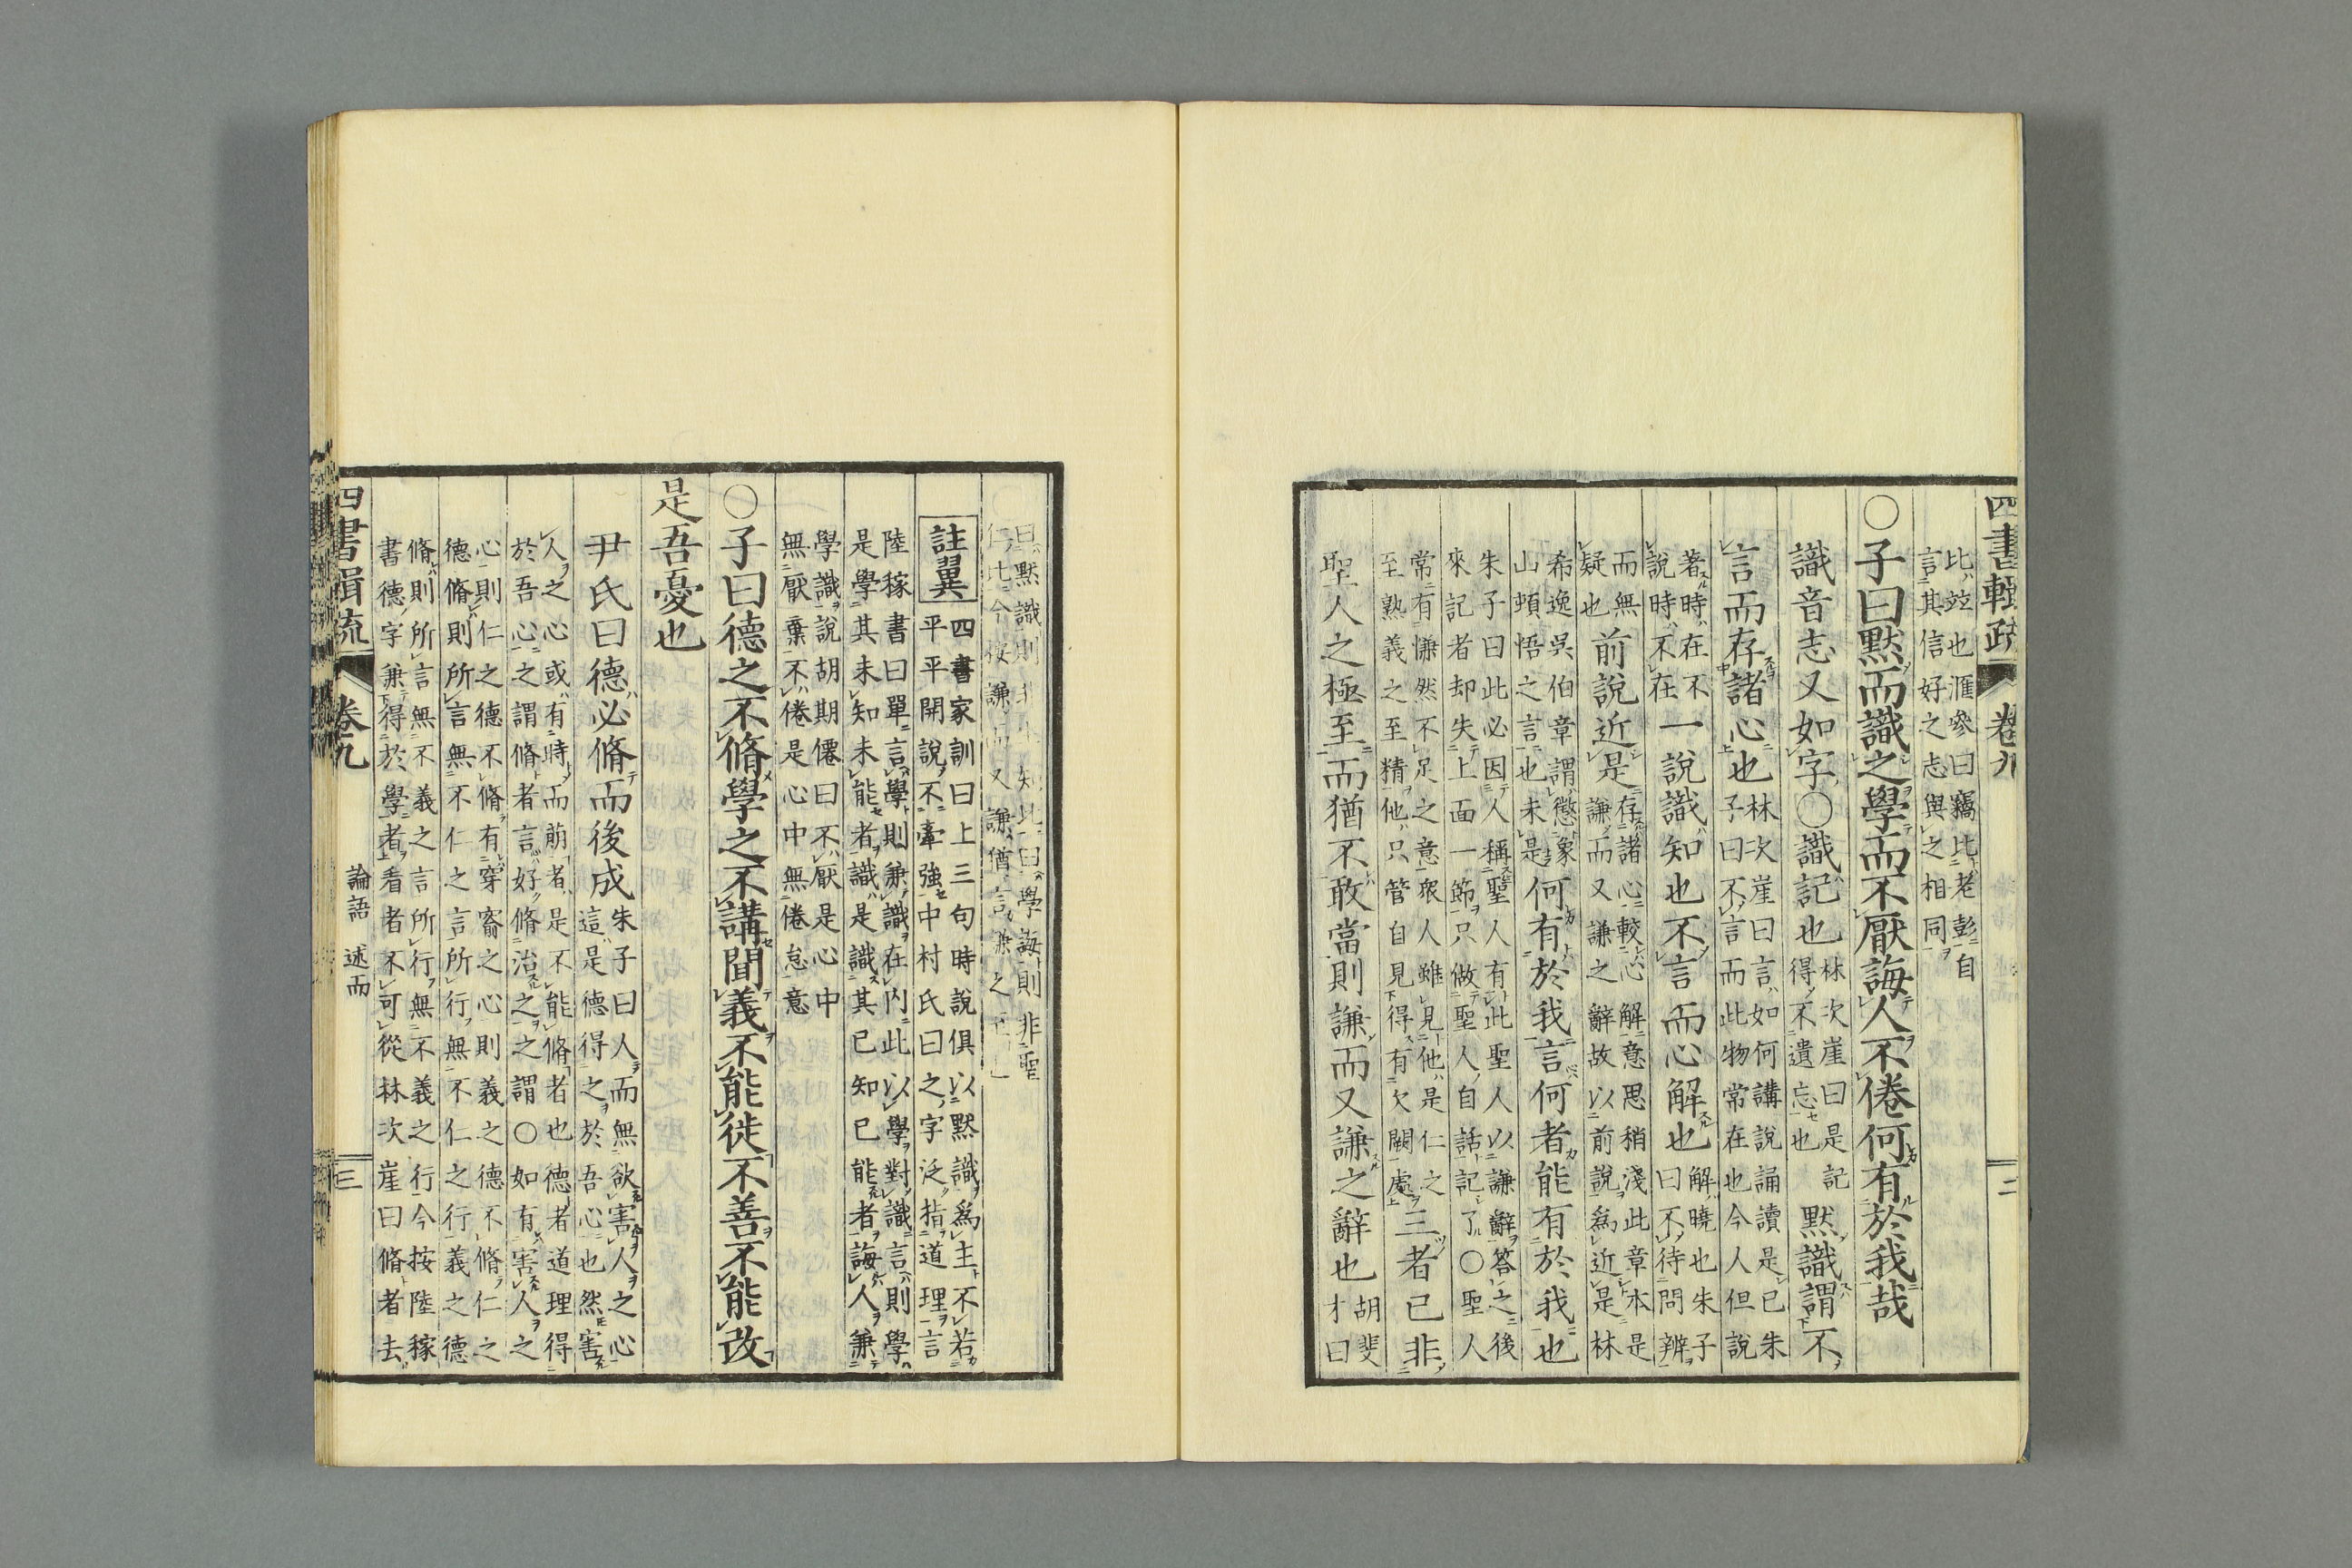 四書輯疏 卷九 二
比竝也滙參曰竊比老彭自
言其信好之志與之相同
〇子曰默而識之學而不厭誨人不倦何有於我哉
識音志又如字〇識記也林次崖曰是記
得不遺忘也默識謂不
言而存諸心也林次崖曰言如何講說誦讀是已朱
子曰不言而此物常在也今人但說
著時在不
說時不在一說識知也不言而心解也解曉也朱子
曰不待問辨
而無
疑也前說近是存諸心較心解意思稍淺此章本是
謙而又謙之辭故以前說爲近是林
希逸吳伯章謂懲象
山頓悟之言也未是何有於我言何者能有於我也
朱子曰此必因人稱聖人有此聖人以謙辭答之後
來記者却失上面一節只做聖人自話記了〇聖人
常有慊然不足之意衆人雖見他是仁之
至熟義之至精他只管自見得有欠闕處三者已非
聖人之極至而猶不敢當則謙而又謙之辭也胡斐
才曰
默識則
今按謙而又謙猶言謙之
註翼四書家訓曰上三句時說俱以默識爲主不若
平平開說不牽強中村氏曰之字泛指道理言
陸稼書曰單言學則兼識在內此以學對識言則學
是學其未知未能者識是識其已知已能者誨人兼
學識說胡期僊曰不厭是心中
無厭棄不倦是心中無倦怠意
〇子曰德之不脩學之不講聞義不能徙不善不能改
是吾憂也
尹氏曰德必脩而後成朱子曰人而無欲害人之心
這是德得之於吾心也然害
人之心或有時而萌者是不能脩者也德者道理得
於吾心之謂脩者言好脩治之之謂〇如有害人之
心則仁之德不脩有穿窬之心則義之德不脩仁之
德脩則所言無不仁之言所行無不仁之行義之德
脩則所言無不義之言所行無不義之行今按陸稼
書德字兼得於學者看者不可從林次崖曰脩者去
四書輯疏 卷九 論語 述而 三